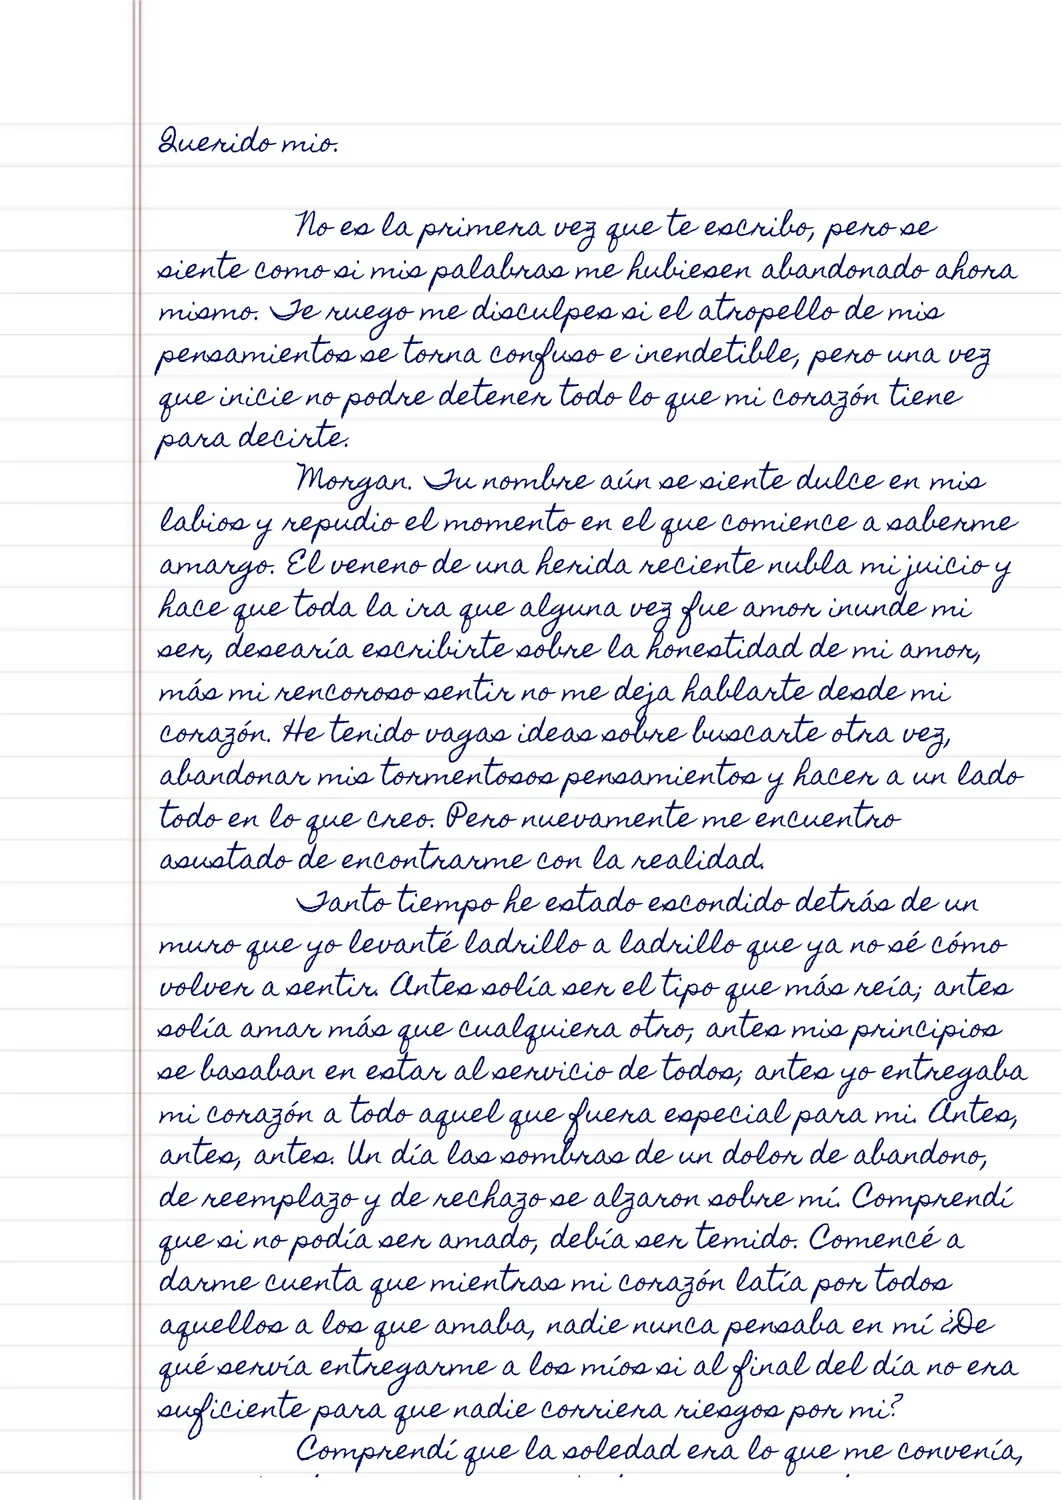 Querido mio.
No es la primera vez que te escribo, pero se
siente como si mis palabras me hubiesen abandonado ahora
mismo. Te ruego me disculpes si el atropello de mis
pensamientos se torna confuso e inendetible, pero una vez
que inicie no podre detener todo lo que mi corazón tiene
para decirte.
Morgan. Tu nombre aún se siente dulce en mis
labios y repudio el momento en el que comience a saberme
amargo. El veneno de una herida reciente nubla mi juicio y
hace que toda la ira que alguna vez fue amor inunde mi
ser, desearía escribirte sobre la honestidad de mi amor,
más mi rencoroso sentir no me deja hablarte desde mi
corazón. He tenido vagas ideas sobre buscarte otra vez,
abandonar mis tormentosos pensamientos y hacer a un lado
todo en lo que creo. Pero nuevamente me encuentro
asustado de encontrarme con la realidad.
Tanto tiempo he estado escondido detrás de un
muro que yo levanté ladrillo a ladrillo que ya no sé cómo
volver a sentir. Antes solía ser el tipo que más reía; antes
solía amar más que cualquiera otro; antes mis principios
se basaban en estar al servicio de todos; antes yo entregaba
mi corazón a todo aquel que fuera especial para mi. Antes,
antes, antes. Un día las sombras de un dolor de abandono,
de reemplazo y de rechazo se alzaron sobre mí. Comprendí
que si no podía ser amado, debía ser temido. Comencé a
darme cuenta que mientras mi corazón latía por todos
aquellos a los que amaba, nadie nunca pensaba en mí ¿De
qué servía entregarme a los míos si al final del día no era
suficiente para que nadie corriera riesgos por mi?
Comprendí que la soledad era lo que me convenía,